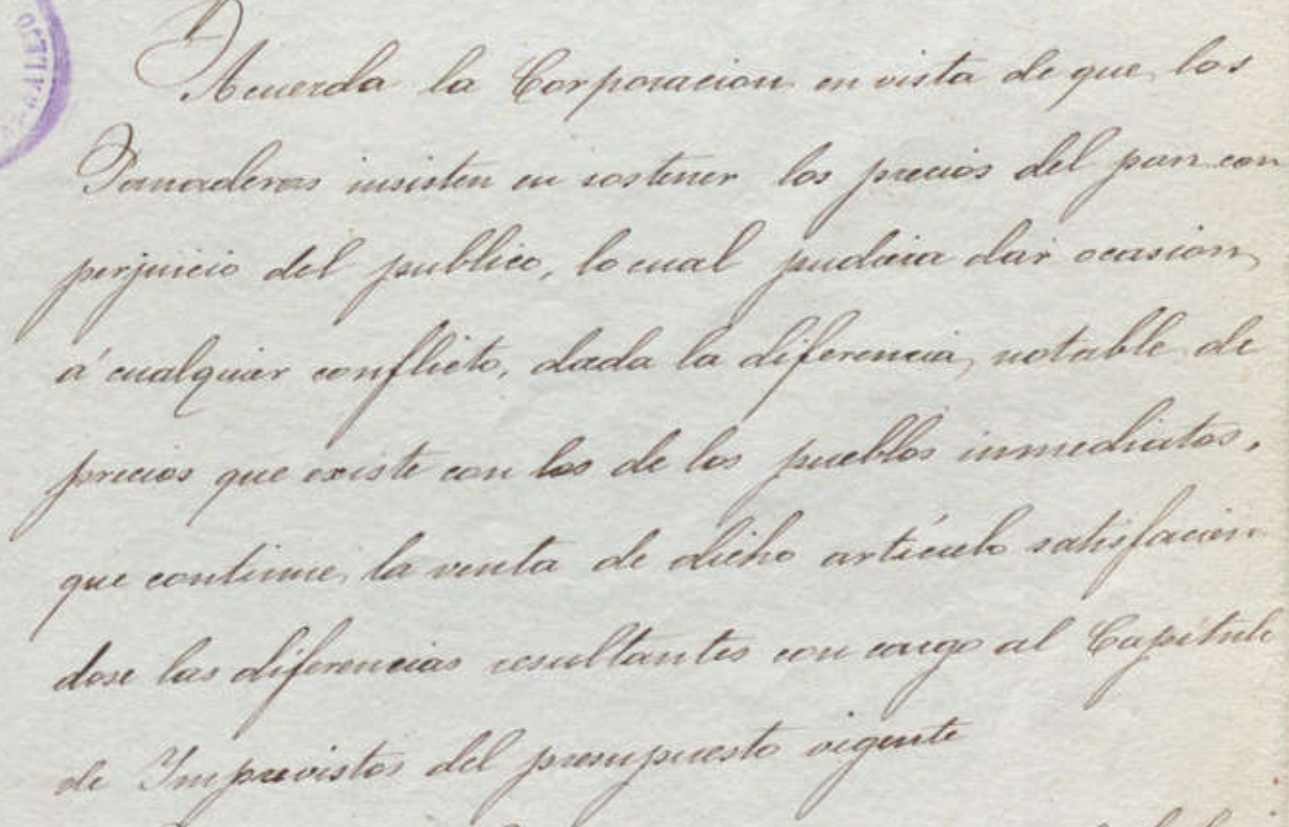 Acuerda la Corporacion en vista de que los
Panaderos insisten en sostener los precios del pan con
perjuicio del publico, lo cual pudiera dar ocasion
á cualquier conflicto, dada la diferencia notable de
precios que existe con los de los pueblos inmediatos,
que continue la venta de dicho artículo satisfacien
dose las diferencias resultantes con cargo al Capitulo
de Imprevistos del presupuesto vigente